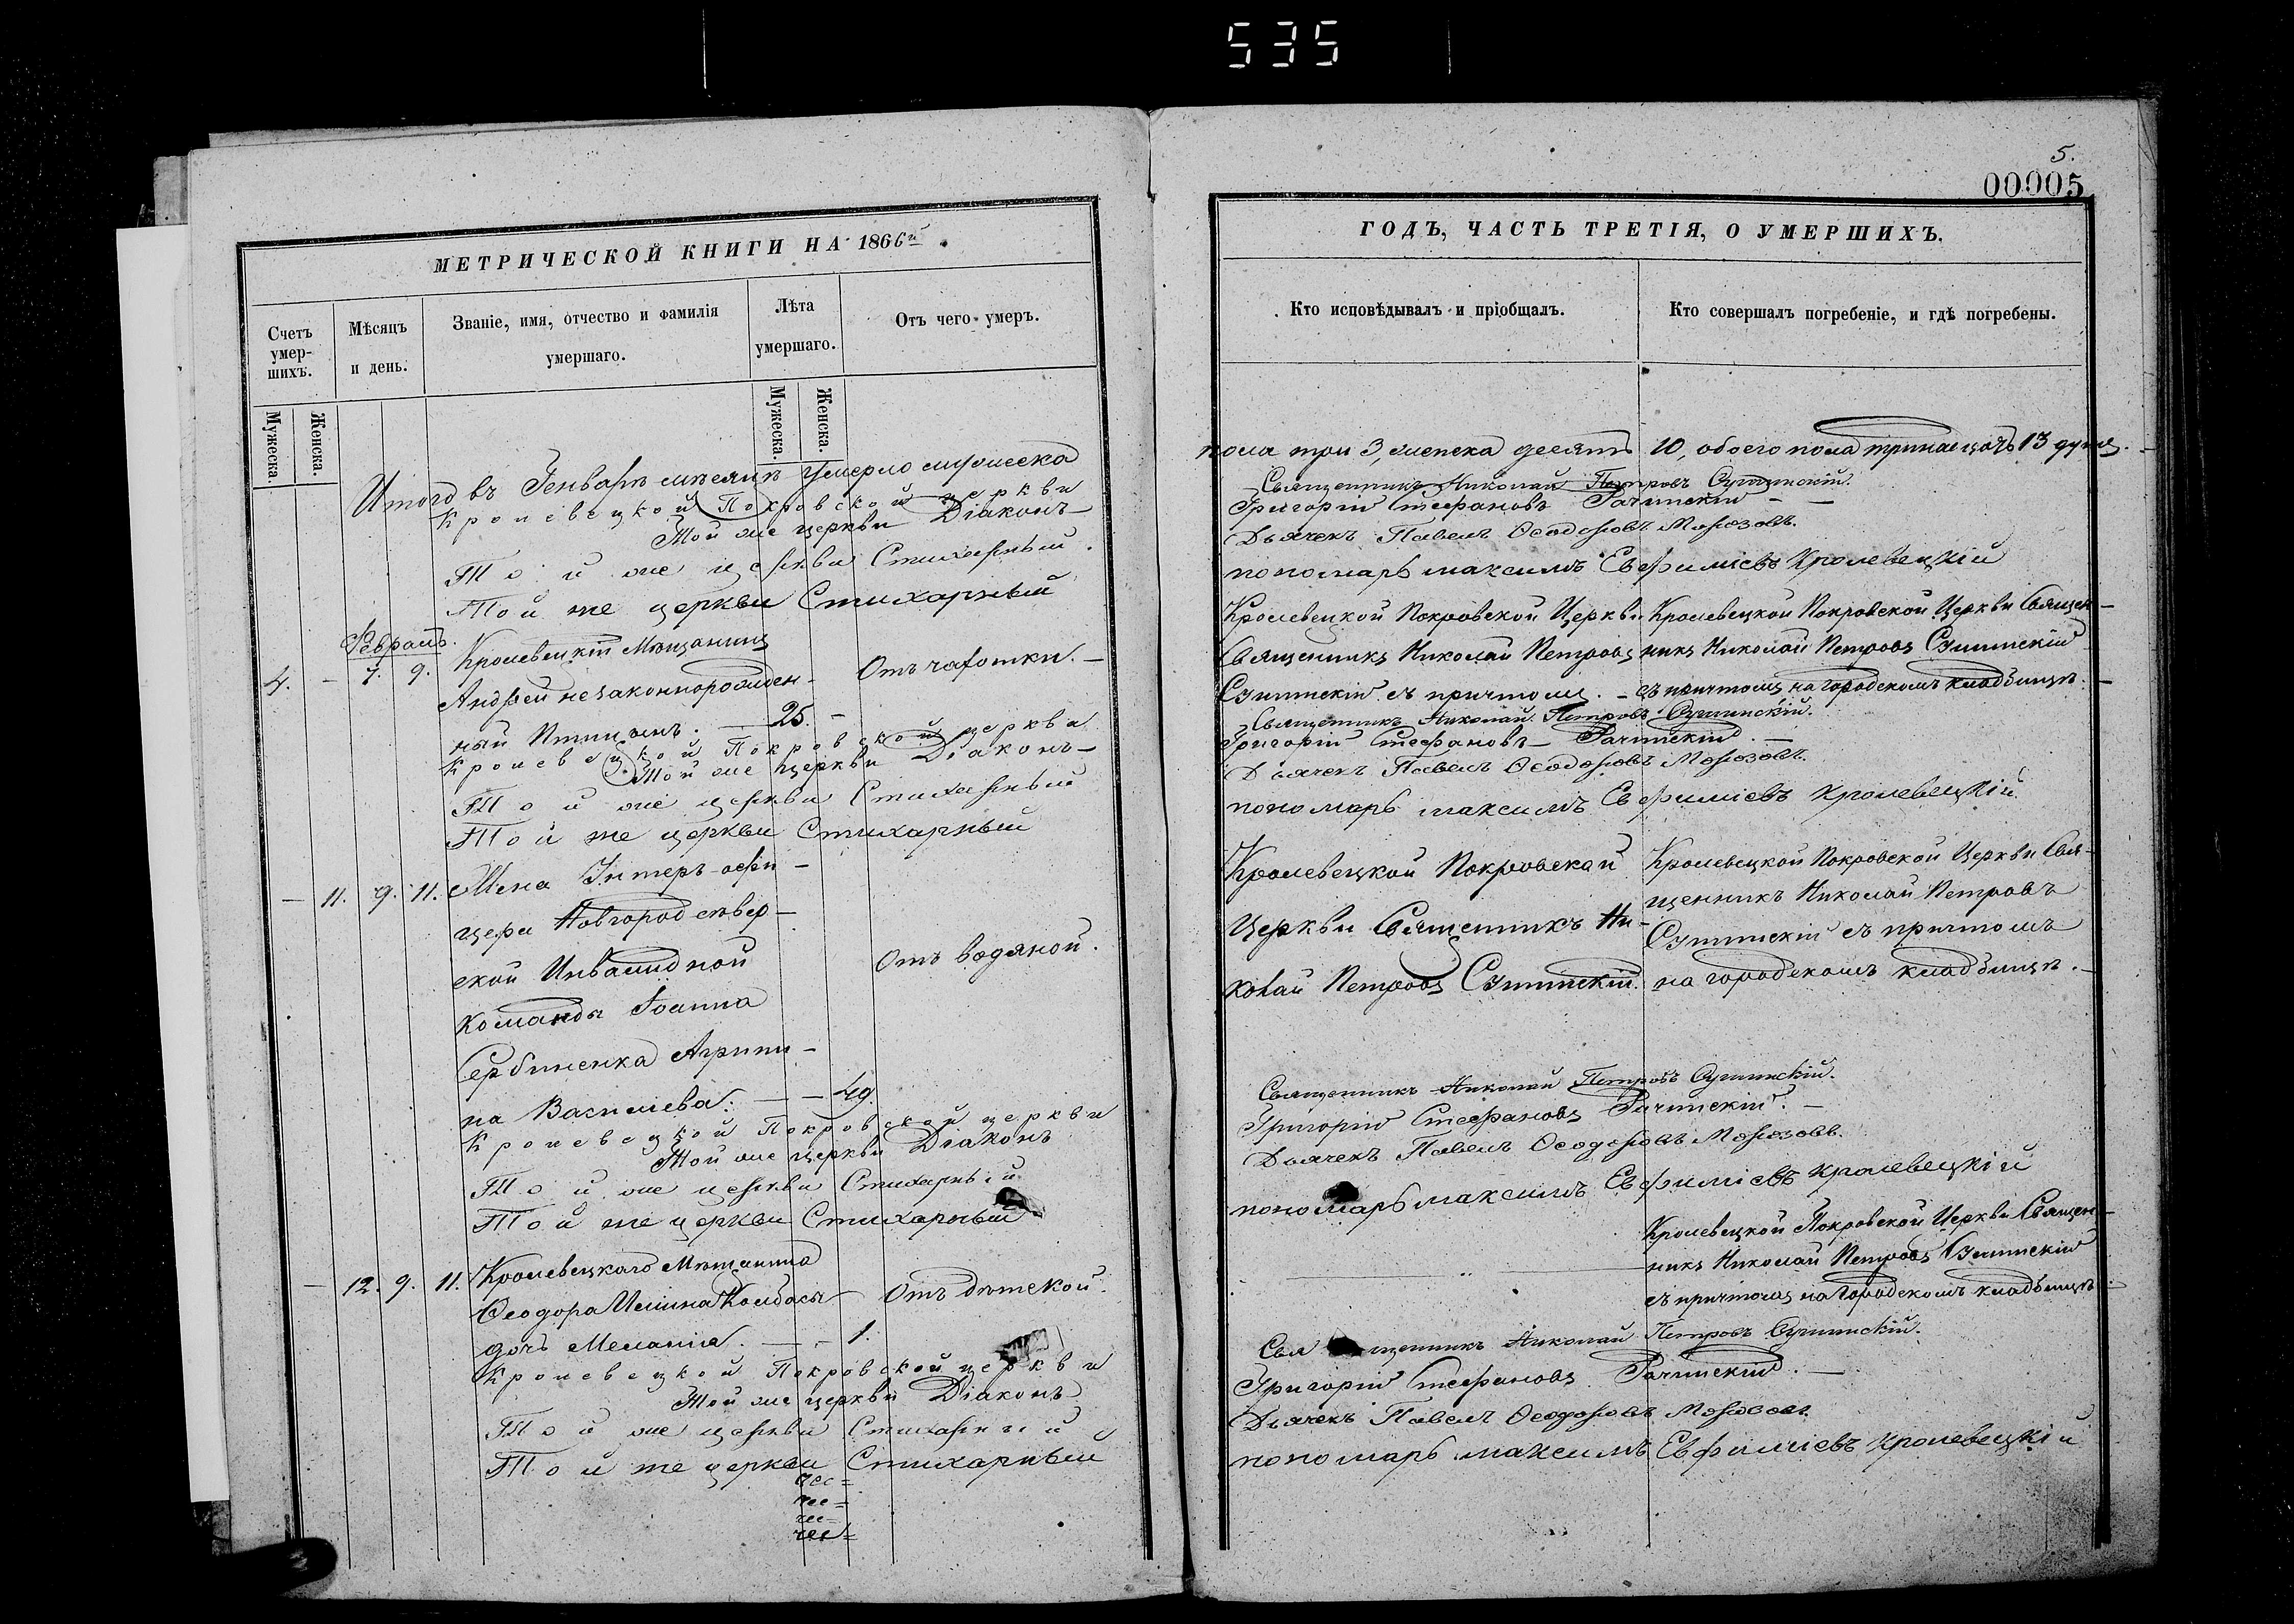 535
5.
00005
МЕТРИЧЕСКОЙ КНИГИ НА 1866й
Счетъ умер-шихъ.
Мѣсяцъ и день.
Званіе, имя, отчество и фамилія умершаго.
Лѣта умершаго.
Отъ чего умеръ.
Мужеска.
Женска.
Мужеска.
Женска.
Итого въ Генварѣ мѣсяцѣ умерло мужеска
Кролевецкой Покровской церкви
Той же церкви Діаконъ
Той же церкви Стихарный
Той же церкви Стихарный
Февраль.
4. – 7. 9. Кролевецкій Мѣщанинъ
Андрей незаконнорожден-
Отъ чахотки.
ный Птицынъ. — 25. –
Кролевецкой Покровской церкви
Той же церкви Діаконъ
Той же церкви Стихарный
Той же церкви Стихарный
– 11. 9. 11. Жена Унтеръ-офи-
цера Новгородсѣвер-
ской Инвалидной
Отъ водяной.
команды Іоанна
Сербиненка Агрипи-
на Васильева. — – 49.
Кролевецкой Покровской церкви
Той же церкви Діаконъ
Той же церкви Стихарный
Той же церкви Стихарный
– 12. 9. 11. Кролевецкаго Мѣщанина
Ѳеодора Колбасы
Отъ дѣтской.
дочь Меланія. — – 1.
Кролевецкой Покровской церкви
Той же церкви Діаконъ
Той же церкви Стихарный
Той же церкви Стихарный
ГОДЪ, ЧАСТЬ ТРЕТІЯ, О УМЕРШИХЪ.
Кто исповѣдывалъ и пріобщалъ.
Кто совершалъ погребеніе, и гдѣ погребены.
пола три 3, женска десять 10, обоего пола тринацать 13 душъ.
Священникъ Николай Петровъ
Григорій Стефановъ Рачинскій
Дьячекъ Павелъ Ѳеодоровъ Морозовъ.
пономарь максимъ Евфиміевъ Кролевецкій
Кролевецкой Покровской Церкви
Священникъ Николай Петровъ
съ причтомъ.
Кролевецкой Покровской Церкви Священ-
никъ Николай Петровъ
съ причтомъ на городскомъ кладбищѣ.
Священникъ Николай Петровъ
Григорій Стефановъ Рачинскій.
Дьячекъ Павелъ Ѳеодоровъ Морозовъ.
пономарь максимъ Евфиміевъ Кролевецкій
Кролевецкой Покровской
Церкви Священникъ Ни-
колай Петровъ
Кролевецкой Покровской Церкви Свя-
щенникъ Николай Петровъ
съ причтомъ
на городскомъ кладбищѣ.
Священникъ Николай Петровъ
Григорій Стефановъ Рачинскій.
Дьячекъ Павелъ Ѳеодоровъ Морозовъ.
пономарь максимъ Евфиміевъ кролевецкій
Кролевецкой Покровской Церкви Священ-
никъ Николай Петровъ
съ причтомъ на Городскомъ кладбищѣ.
Священникъ Николай Петровъ
Григорій Стефановъ Рачинскій.
Дьячекъ Павелъ Ѳеодоровъ Морозовъ
пономарь максимъ Евфиміевъ кролевецкій